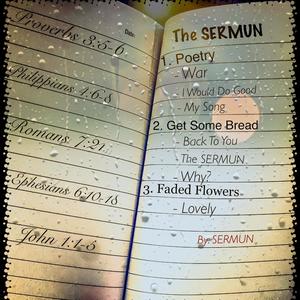 Proverbs 3:5-6
Date:
Philippians 4:6-8
Romans 7:21
Ephesians 6:10-18
John 1:1-5
The SERMUN
1. Poetry
- War
- I Would Do Good
- My Song
2. Get Some Bread
- Back To You
- The SERMUN
- Why?
3. Faded Flowers
- Lovely
By: SERMUN